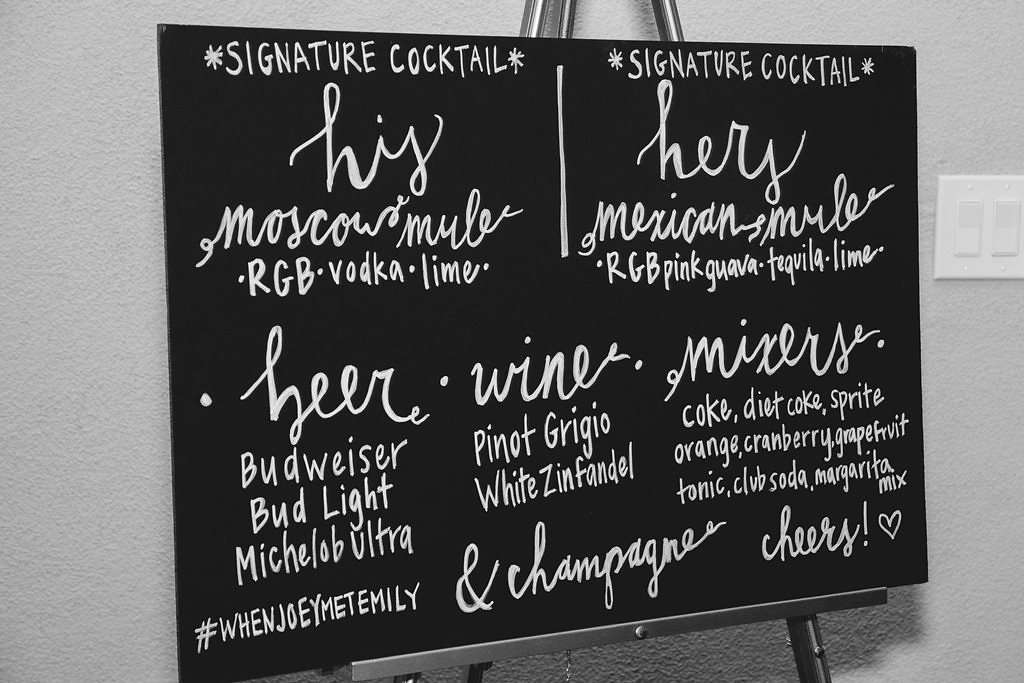 *SIGNATURE COCKTAIL*
his
moscow mule
·RGB·vodka·lime·
*SIGNATURE COCKTAIL*
hers
mexican mule
·RGB pink guava·tequila·lime·
· beer ·
Budweiser
Bud Light
Michelob Ultra
wine ·
Pinot Grigio
White Zinfandel
mixers ·
coke, diet coke, sprite
orange, cranberry, grapefruit
tonic, club soda, margarita
mix
& champagne
cheers! ♡
#WHENJOEYMETEMILY